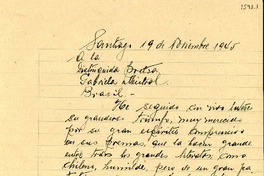 Santiago 19 de Noviembre 1945
A la
distinguida Poetisa
Gabriela Mistral
Brasil.—
He seguido con vivo interés
su grandioso triunfo, muy merecido
por su gran espíritu comprensivo
en sus Poemas, que la hacen grande
entre todos los grandes literatos, como
chilena, humilde, pero de un gran